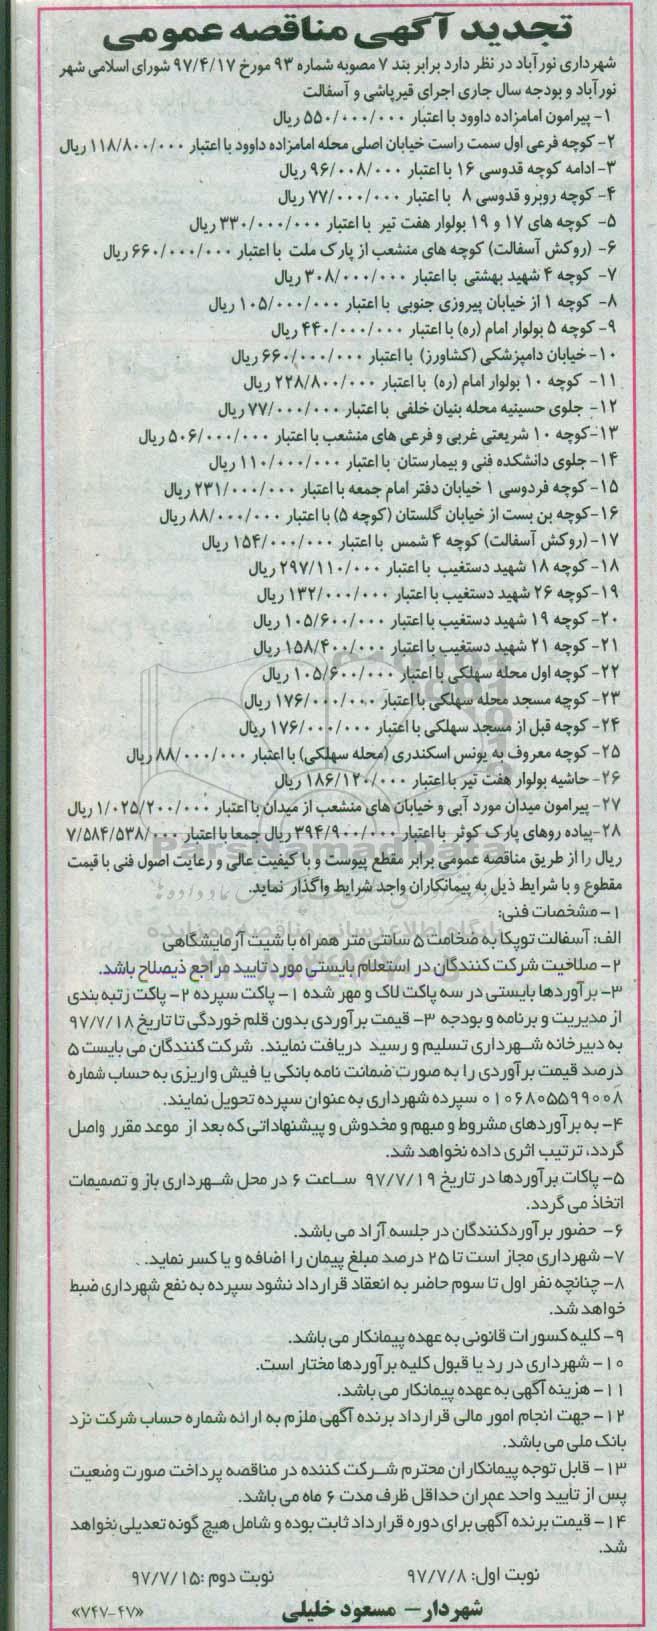 تجدید آگهی مناقصه عمومی
شهرداری نورآباد در نظر دارد برابر بند ۷ مصوبه شماره ۹۳ مورخ ۹۷/۴/۱۷ شورای اسلامی شهر
نورآباد و بودجه سال جاری اجرای قیرپاشی و آسفالت
۱- پیرامون امامزاده داوود با اعتبار ۵۵۰/۰۰۰/۰۰۰ ریال
۲- کوچه فرعی اول سمت راست خیابان اصلی محله امامزاده داوود با اعتبار ۱۱۸/۸۰۰/۰۰۰ ریال
۳- ادامه کوچه قدوسی ۱۶ با اعتبار ۹۶/۰۰۸/۰۰۰ ریال
۴- کوچه روبرو قدوسی ۸ با اعتبار ۷۷/۰۰۰/۰۰۰ ریال
۵- کوچه های ۱۷ و ۱۹ بولوار هفت تیر با اعتبار ۳۳۰/۰۰۰/۰۰۰ ریال
۶- (روکش آسفالت) کوچه های منشعب از پارک ملت با اعتبار ۶۶۰/۰۰۰/۰۰۰ ریال
۷- کوچه ۴ شهید بهشتی با اعتبار ۳۰۸/۰۰۰/۰۰۰ ریال
۸- کوچه ۱ از خیابان پیروزی جنوبی با اعتبار ۱۰۵/۰۰۰/۰۰۰ ریال
۹- کوچه ۵ بولوار امام (ره) با اعتبار ۴۴۰/۰۰۰/۰۰۰ ریال
۱۰- خیابان دامپزشکی (کشاورز) با اعتبار ۶۶۰/۰۰۰/۰۰۰ ریال
۱۱- کوچه ۱۰ بولوار امام (ره) با اعتبار ۲۲۸/۸۰۰/۰۰۰ ریال
۱۲- جلوی حسینیه محله بنیان خلفی با اعتبار ۷۷/۰۰۰/۰۰۰ ریال
۱۳-کوچه ۱۰ شریعتی غربی و فرعی های منشعب با اعتبار ۵۰۶/۰۰۰/۰۰۰ ریال
۱۴- جلوی دانشکده فنی و بیمارستان با اعتبار ۱۱۰/۰۰۰/۰۰۰ ریال
۱۵- کوچه فردوسی ۱ خیابان دفتر امام جمعه با اعتبار ۲۳۱/۰۰۰/۰۰۰ ریال
۱۶-کوچه بن بست از خیابان گلستان (کوچه ۵) با اعتبار ۸۸/۰۰۰/۰۰۰ ریال
۱۷- (روکش آسفالت) کوچه ۴ شمس با اعتبار ۱۵۴/۰۰۰/۰۰۰ ریال
۱۸- کوچه ۱۸ شهید دستغیب با اعتبار ۲۹۷/۱۱۰/۰۰۰ ریال
۱۹-کوچه ۲۶ شهید دستغیب با اعتبار ۱۳۲/۰۰۰/۰۰۰ ریال
۲۰- کوچه ۱۹ شهید دستغیب با اعتبار ۱۰۵/۶۰۰/۰۰۰ ریال
۲۱- کوچه ۲۱ شهید دستغیب با اعتبار ۱۵۸/۴۰۰/۰۰۰ ریال
۲۲- کوچه اول محله سهلکی با اعتبار ۱۰۵/۶۰۰/۰۰۰ ریال
۲۳- کوچه مسجد محله سهلکی با اعتبار ۱۷۶/۰۰۰/۰۰۰ ریال
۲۴- کوچه قبل از مسجد سهلکی با اعتبار ۱۷۶/۰۰۰/۰۰۰ ریال
۲۵- کوچه معروف به یونس اسکندری (محله سهلکی) با اعتبار ۸۸/۰۰۰/۰۰۰ ریال
۲۶- حاشیه بولوار هفت تیر با اعتبار ۱۸۶/۱۲۰/۰۰۰ ریال
۲۷- پیرامون میدان مورد آبی و خیابان های منشعب از میدان با اعتبار ۱/۰۲۵/۲۰۰/۰۰۰ ریال
۲۸-پیاده روهای پارک کوثر با اعتبار ۳۹۴/۹۰۰/۰۰۰ ریال جمعا با اعتبار ۷/۵۸۴/۵۳۸/۰۰۰
ریال را از طریق مناقصه عمومی برابر مقطع پیوست و با کیفیت عالی و رعایت اصول فنی با قیمت
مقطوع و با شرایط ذیل به پیمانکاران واجد شرایط واگذار نماید.
۱- مشخصات فنی:
الف: آسفالت توپکا به ضخامت ۵ سانتی متر همراه با شیت آزمایشگاهی
۲- صلاحیت شرکت کنندگان در استعلام بایستی مورد تایید مراجع ذیصلاح باشد.
۳- برآوردها بایستی در سه پاکت لاک و مهر شده ۱- پاکت سپرده ۲- پاکت رتبه بندی
از مدیریت و برنامه و بودجه ۳- قیمت برآوردی بدون قلم خوردگی تا تاریخ ۹۷/۷/۱۸
به دبیرخانه شهرداری تسلیم و رسید دریافت نمایند. شرکت کنندگان می بایست ۵
درصد قیمت برآوردی را به صورت ضمانت نامه بانکی یا فیش واریزی به حساب شماره
۰۱۰۶۸۰۵۵۹۹۰۰۸ سپرده شهرداری به عنوان سپرده تحویل نمایند.
۴- به برآوردهای مشروط و مبهم و مخدوش و پیشنهاداتی که بعد از موعد مقرر واصل
گردد، ترتیب اثری داده نخواهد شد.
۵- پاکات برآوردها در تاریخ ۹۷/۷/۱۹ ساعت ۶ در محل شهرداری باز و تصمیمات
اتخاذ می گردد.
۶- حضور برآوردکنندگان در جلسه آزاد می باشد.
۷- شهرداری مجاز است تا ۲۵ درصد مبلغ پیمان را اضافه و یا کسر نماید.
۸- چنانچه نفر اول تا سوم حاضر به انعقاد قرارداد نشود سپرده به نفع شهرداری ضبط
خواهد شد.
۹- کلیه کسورات قانونی به عهده پیمانکار می باشد.
۱۰- شهرداری در رد یا قبول کلیه برآوردها مختار است.
۱۱- هزینه آگهی به عهده پیمانکار می باشد.
۱۲- جهت انجام امور مالی قرارداد برنده آگهی ملزم به ارائه شماره حساب شرکت نزد
بانک ملی می باشد.
۱۳- قابل توجه پیمانکاران محترم شرکت کننده در مناقصه پرداخت صورت وضعیت
پس از تأیید واحد عمران حداقل ظرف مدت ۶ ماه می باشد.
۱۴- قیمت برنده آگهی برای دوره قرارداد ثابت بوده و شامل هیچ گونه تعدیلی نخواهد
شد.
نوبت اول: ۹۷/۷/۸ نوبت دوم :۹۷/۷/۱۵
شهردار – مسعود خلیلی
«۷۴۷-۴۷»
ParsNamadData